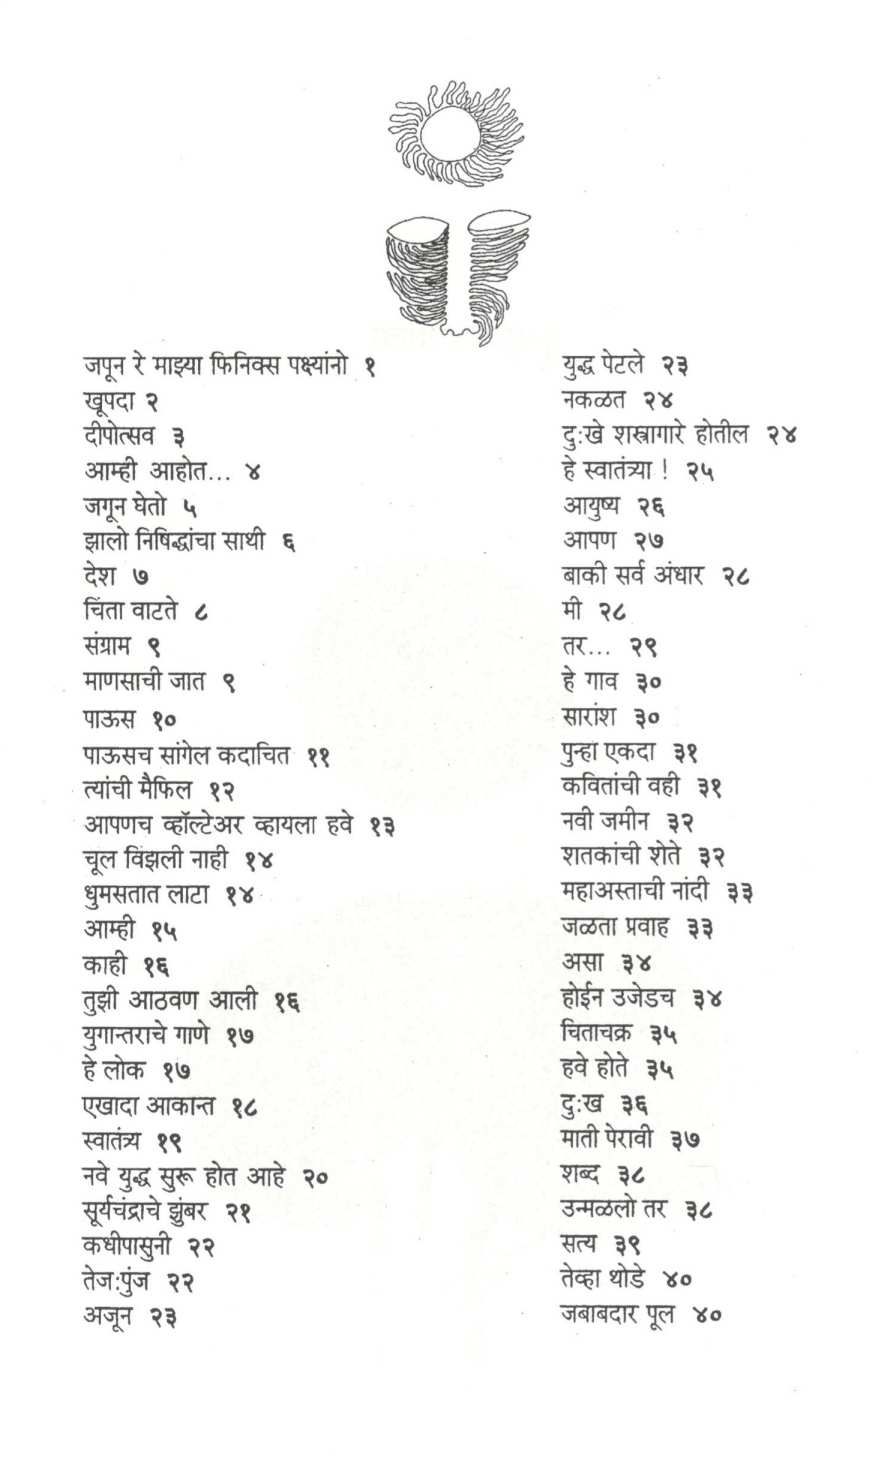 जपून रे माझ्या फिनिक्स पक्ष्यांनो १
खूपदा २
दीपोत्सव ३
आम्ही आहोत... ४
जगून घेतो ५
झालो निषिद्धांचा साथी ६
देश ७
चिंता वाटते ८
संग्राम ९
माणसाची जात ९
पाऊस १०
पाऊसच सांगेल कदाचित ११
त्यांची मैफिल १२
आपणच व्हॉल्टेअर व्हायला हवे १३
चूल विझली नाही १४
धुमसतात लाटा १४
आम्ही १५
काही १६
तुझी आठवण आली १६
युगान्तराचे गाणे १७
हे लोक १७
एखादा आकान्त १८
स्वातंत्र्य १९
नवे युद्ध सुरू होत आहे २०
सूर्यचंद्राचे झुंबर २१
कधीपासुनी २२
तेज:पुंज २२
अजून २३
युद्ध पेटले २३
नकळत २४
दु:खे शस्त्रागारे होतील २४
हे स्वातंत्र्या ! २५
आयुष्य २६
आपण २७
बाकी सर्व अंधार २८
मी २८
तर... २९
हे गाव ३०
सारांश ३०
पुन्हा एकदा ३१
कवितांची वही ३१
नवी जमीन ३२
शतकांची शेते ३२
महाअस्ताची नांदी ३३
जळता प्रवाह ३३
असा ३४
होईन उजेडच ३४
चिताचक्र ३५
हवे होते ३५
दु:ख ३६
माती पेरावी ३७
शब्द ३८
उन्मळलो तर ३८
सत्य ३९
तेव्हा थोडे ४०
जबाबदार पूल ४०